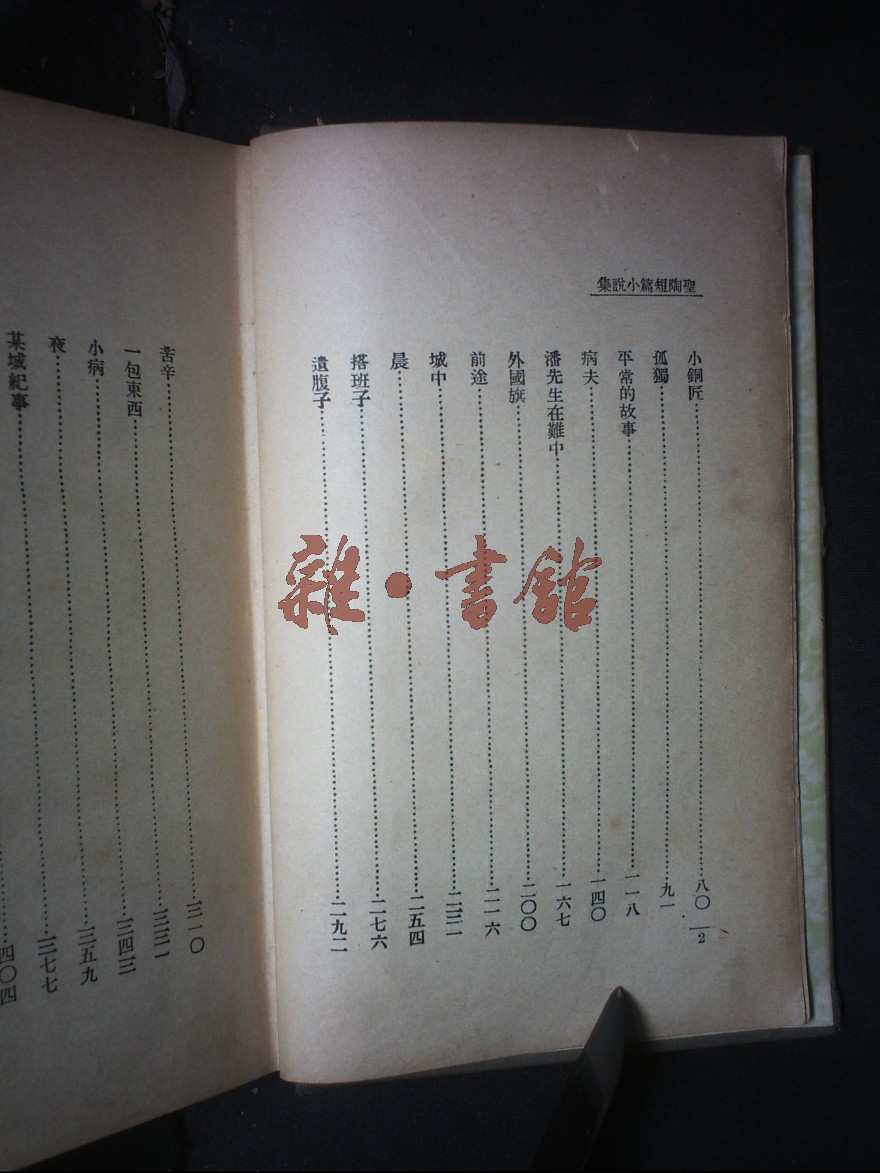 聖陶短篇小說集
小銅匠……八〇
孤獨……九一
平常的故事……一一八
病夫……一四〇
潘先生在難中……一六七
外國旗……二〇〇
前途……二一六
城中……二三一
晨……二五四
搭班子……二七六
遺腹子……二九二
2
苦辛……三一〇
一包東西……三三一
小病……三四三
夜……三五九
某城紀事……三七七
……四〇四
雜·書館